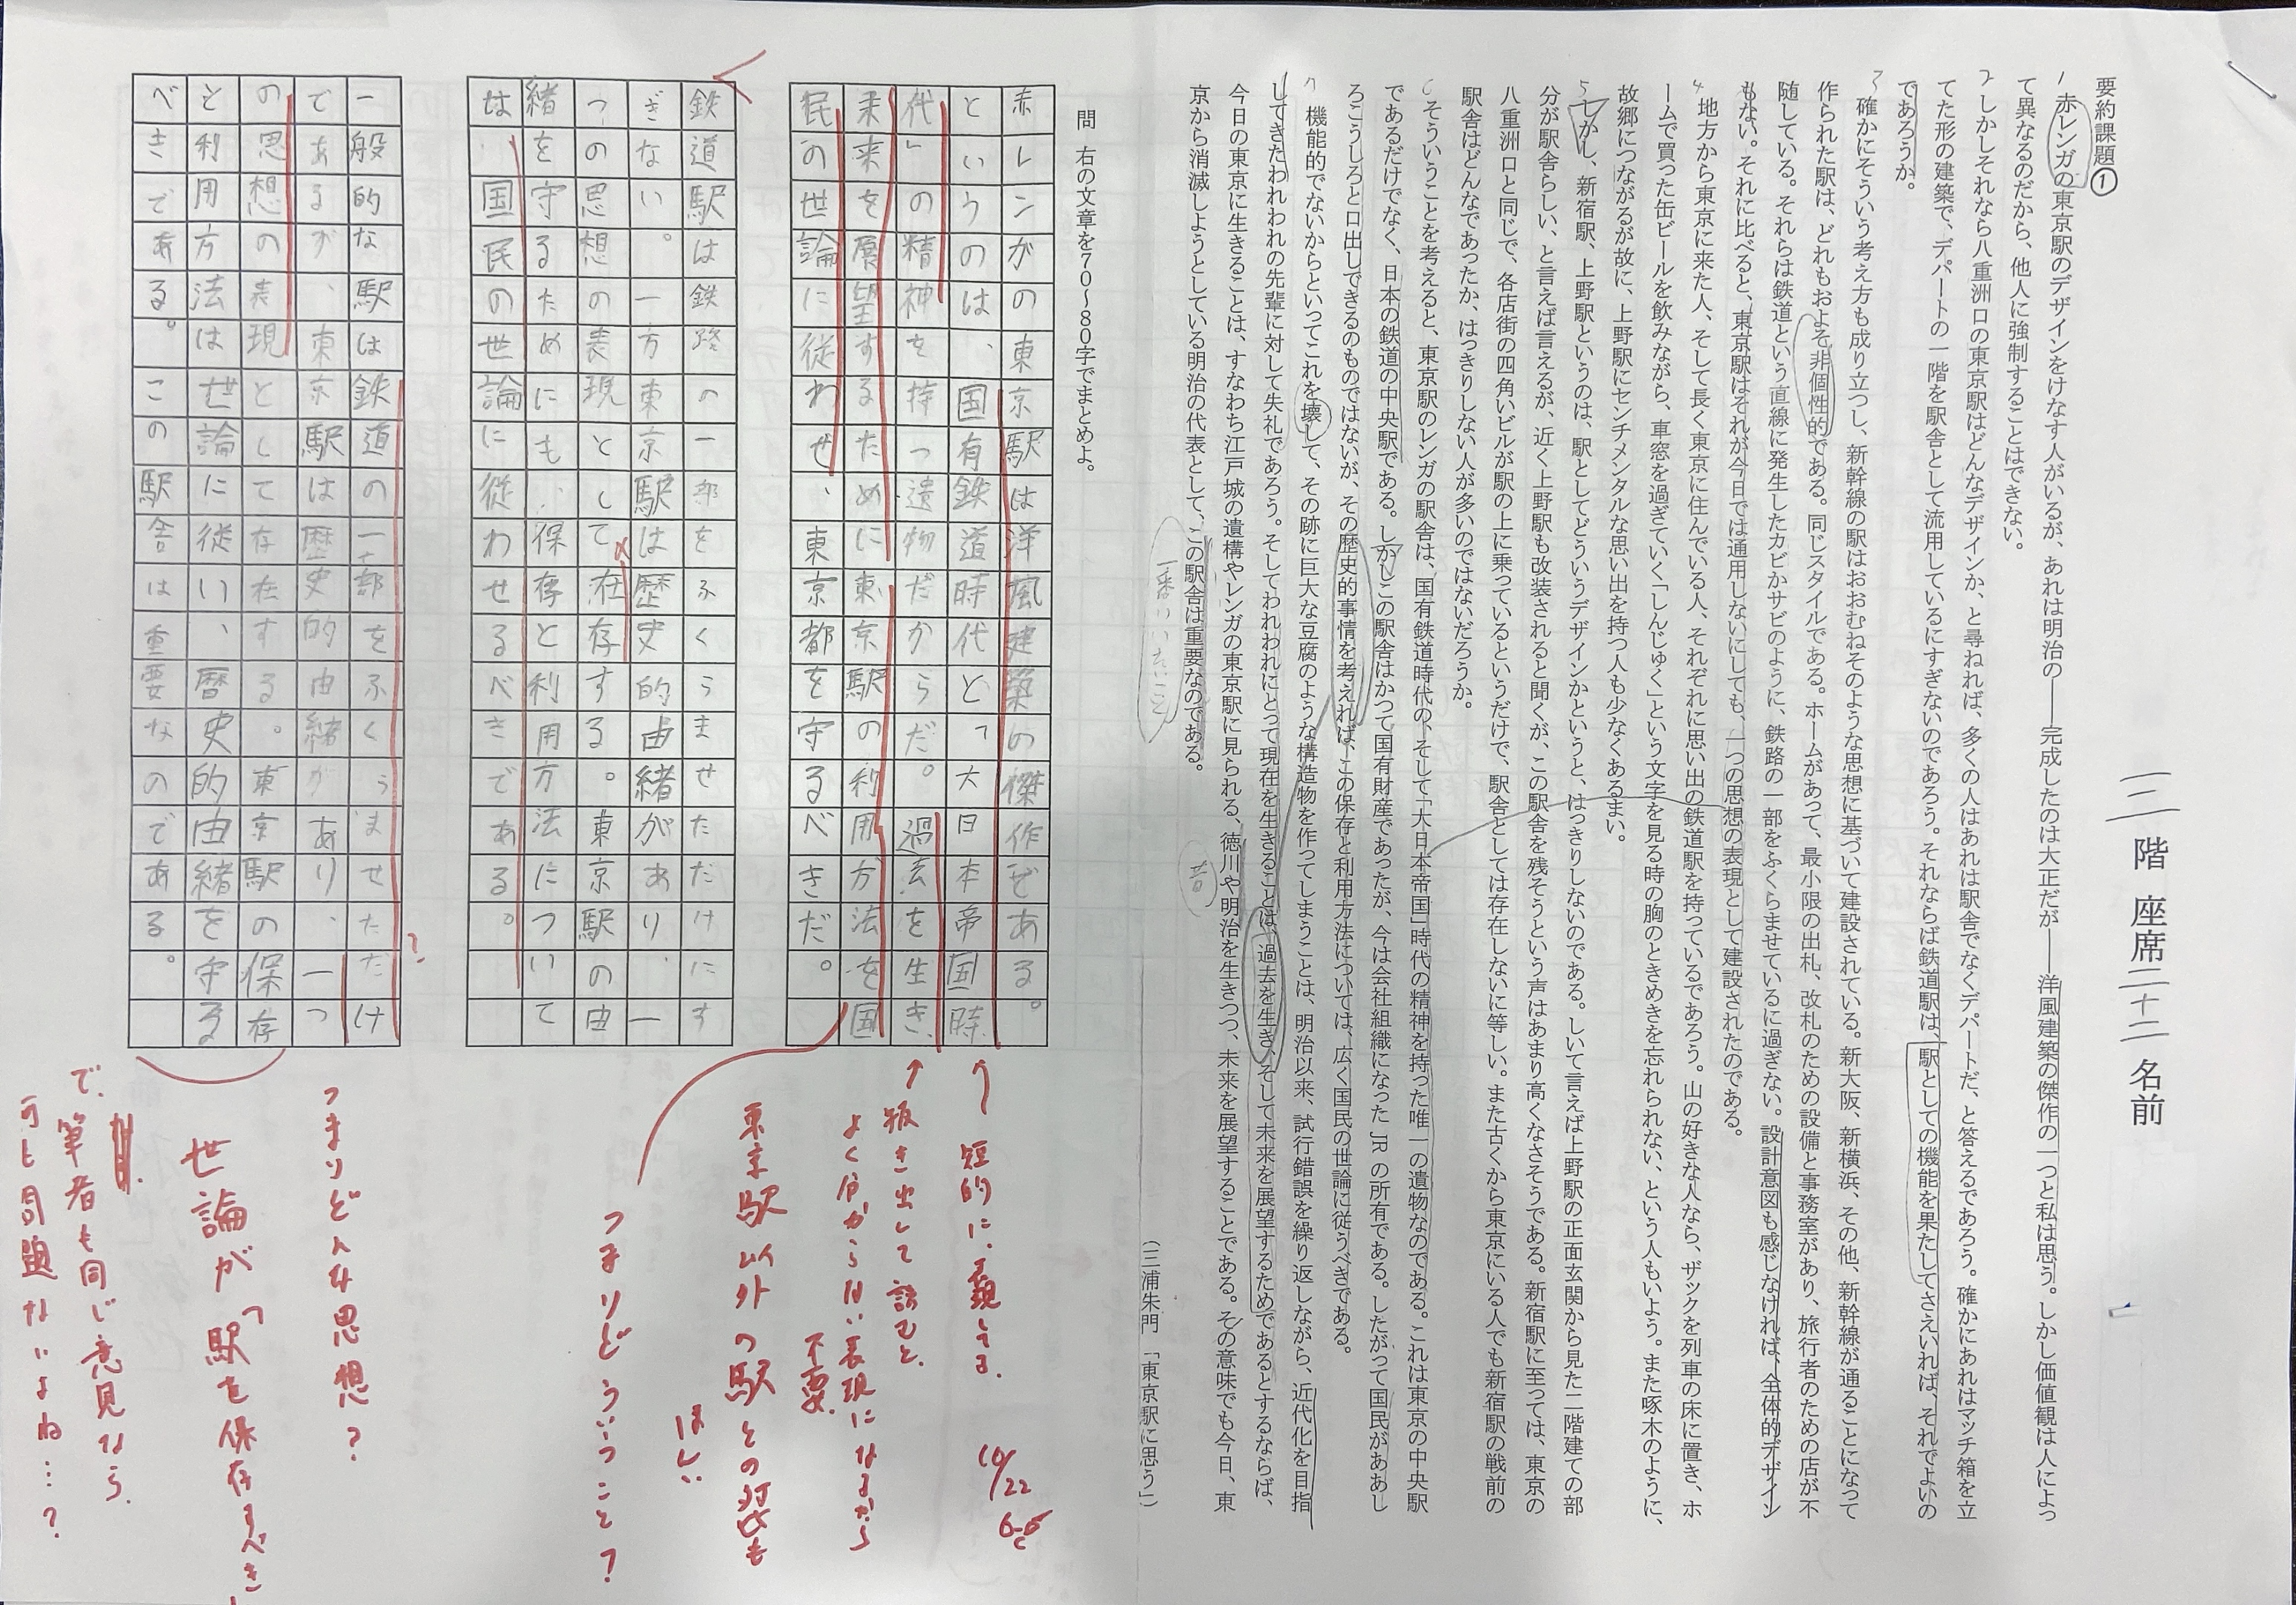 要約課題①
二階 座席二十二 名前
1 赤レンガの東京駅のデザインをけなす人がいるが、あれは明治の――完成したのは大正だが――洋風建築の傑作の一つと私は思う。しかし価値観は人によっ
て異なるのだから、他人に強制することはできない。
2 しかしそれなら八重洲口の東京駅はどんなデザインか、と尋ねれば、多くの人はあれは駅舎でなくデパートだ、と答えるであろう。確かにあれはマッチ箱を立
てた形の建築で、デパートの一階を駅舎として流用しているにすぎないのであろう。それならば鉄道駅は、駅としての機能を果たしてさえいれば、それでよいの
であろうか。
3 確かにそういう考え方も成り立つし、新幹線の駅はおおむねそのような思想に基づいて建設されている。新大阪、新横浜、その他、新幹線が通ることになって
作られた駅は、どれもおよそ非個性的である。同じスタイルである。ホームがあって、最小限の出札、改札のための設備と事務室があり、旅行者のための店が不
随している。それらは鉄道という直線に発生したカビかサビのように、鉄路の一部をふくらませているに過ぎない。設計意図も感じなければ、全体的デザイン
もない。それに比べると、東京駅はそれが今日では通用しないにしても、一つの思想の表現として建設されたのである。
4 地方から東京に来た人、そして長く東京に住んでいる人、それぞれに思い出の鉄道駅を持っているであろう。山の好きな人なら、ザックを列車の床に置き、ホ
ームで買った缶ビールを飲みながら、車窓を過ぎていく「しんじゅく」という文字を見る時の胸のときめきを忘れられない、という人もいよう。また啄木のように、
故郷につながるが故に、上野駅にセンチメンタルな思い出を持つ人も少なくあるまい。
5 しかし、新宿駅、上野駅というのは、駅としてどういうデザインかというと、はっきりしないのである。しいて言えば上野駅の正面玄関から見た二階建ての部
分が駅舎らしい、と言えば言えるが、近く上野駅も改装されると聞くが、この駅舎を残そうという声はあまり高くなさそうである。新宿駅に至っては、東京の
八重洲口と同じで、各店街の四角いビルが駅の上に乗っているというだけで、駅舎としては存在しないに等しい。また古くから東京にいる人でも新宿駅の戦前の
駅舎はどんなであったか、はっきりしない人が多いのではないだろうか。
6 そういうことを考えると、東京駅のレンガの駅舎は、国有鉄道時代の、そして「大日本帝国」時代の精神を持った唯一の遺物なのである。これは東京の中央駅
であるだけでなく、日本の鉄道の中央駅である。しかしこの駅舎はかつて国有財産であったが、今は会社組織になったJRの所有である。したがって国民がああし
ろこうしろと口出しできるのものではないが、その歴史的事情を考えれば、この保存と利用方法については、広く国民の世論に従うべきである。
7 機能的でないからといってこれを壊して、その跡に巨大な豆腐のような構造物を作ってしまうことは、明治以来、試行錯誤を繰り返しながら、近代化を目指
してきたわれわれの先輩に対して失礼であろう。そしてわれわれにとって現在を生きることは、過去を生き、そして未来を展望するためであるとするならば、
今日の東京に生きることは、すなわち江戸城の遺構やレンガの東京駅に見られる、徳川や明治を生きつつ、未来を展望することである。その意味でも今日、東
京から消滅しようとしている明治の代表として、この駅舎は重要なのである。
一番いいたいこと
昔
(三浦朱門「東京駅に思う」)
問 右の文章を70～80字でまとめよ。
赤レンガの東京駅は洋風建築の傑作ぞある。
というのは、国有鉄道時代と「大日本帝国時
代」の精神を持つ遺物だからだ。過去を生き、
未来を展望するために東京駅の利用方法を国
民の世論に従わせ、東京都を守るべきだ。
鉄道駅は鉄路の一部をふくらませただけにす
ぎない。一方東京駅は歴史的由緒があり、一
つの思想の表現として存在する。東京駅の由
緒を守るためにも、保存と利用方法について
は、国民の世論に従わせるべきである。
一般的な駅は鉄道の一部をふくらませただけ
であるが、東京駅は歴史的由緒があり、一つ
の思想の表現として存在する。東京駅の保存
と利用方法は世論に従い、暦史的由緒を守る
べきである。この駅舎は重要なのである。
短的に、
10/22
抜き出して読むと、
よく分からない表現になるから
不要
東京駅以外の駅との対比も
ほしい
つまりどういうこと?
?
つまりどんな思想?
世論が「駅を保存すべき」
で、筆者も同じ意見なら、
何も問題ないよね…?